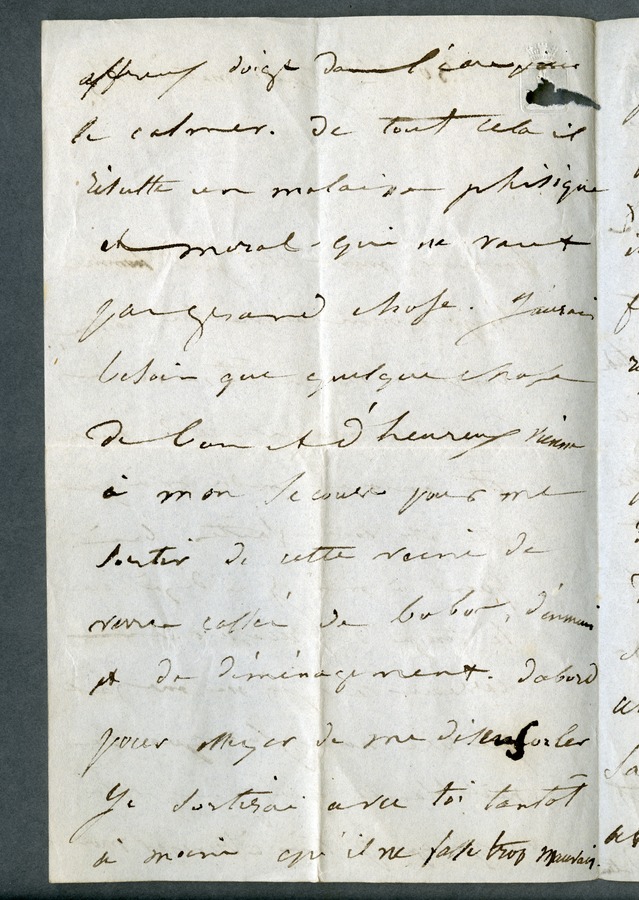 affreux doigt dans l'eau pour
le calmer. De tout cela il
résulte un malaise phisique
et moral qui ne vaut
pas grand chose. J'aurais
besoin que quelque chose
de bon et d'heureux vienne
à mon secours pour me
sortir de cette veine de
verre cassé de bobos, d'ennuis
et de déménagement. D'abord
pour essayer de me
je sortirai avec toi tantôt
à moins qu'il ne fasse trop mauvais.